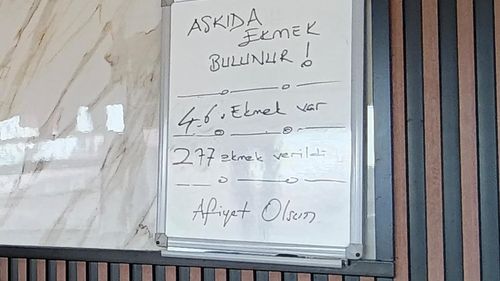 ASKIDA
EKMEK
BULUNUR!
46. Ekmek var
277 ekmek verildi
Afiyet Olsun